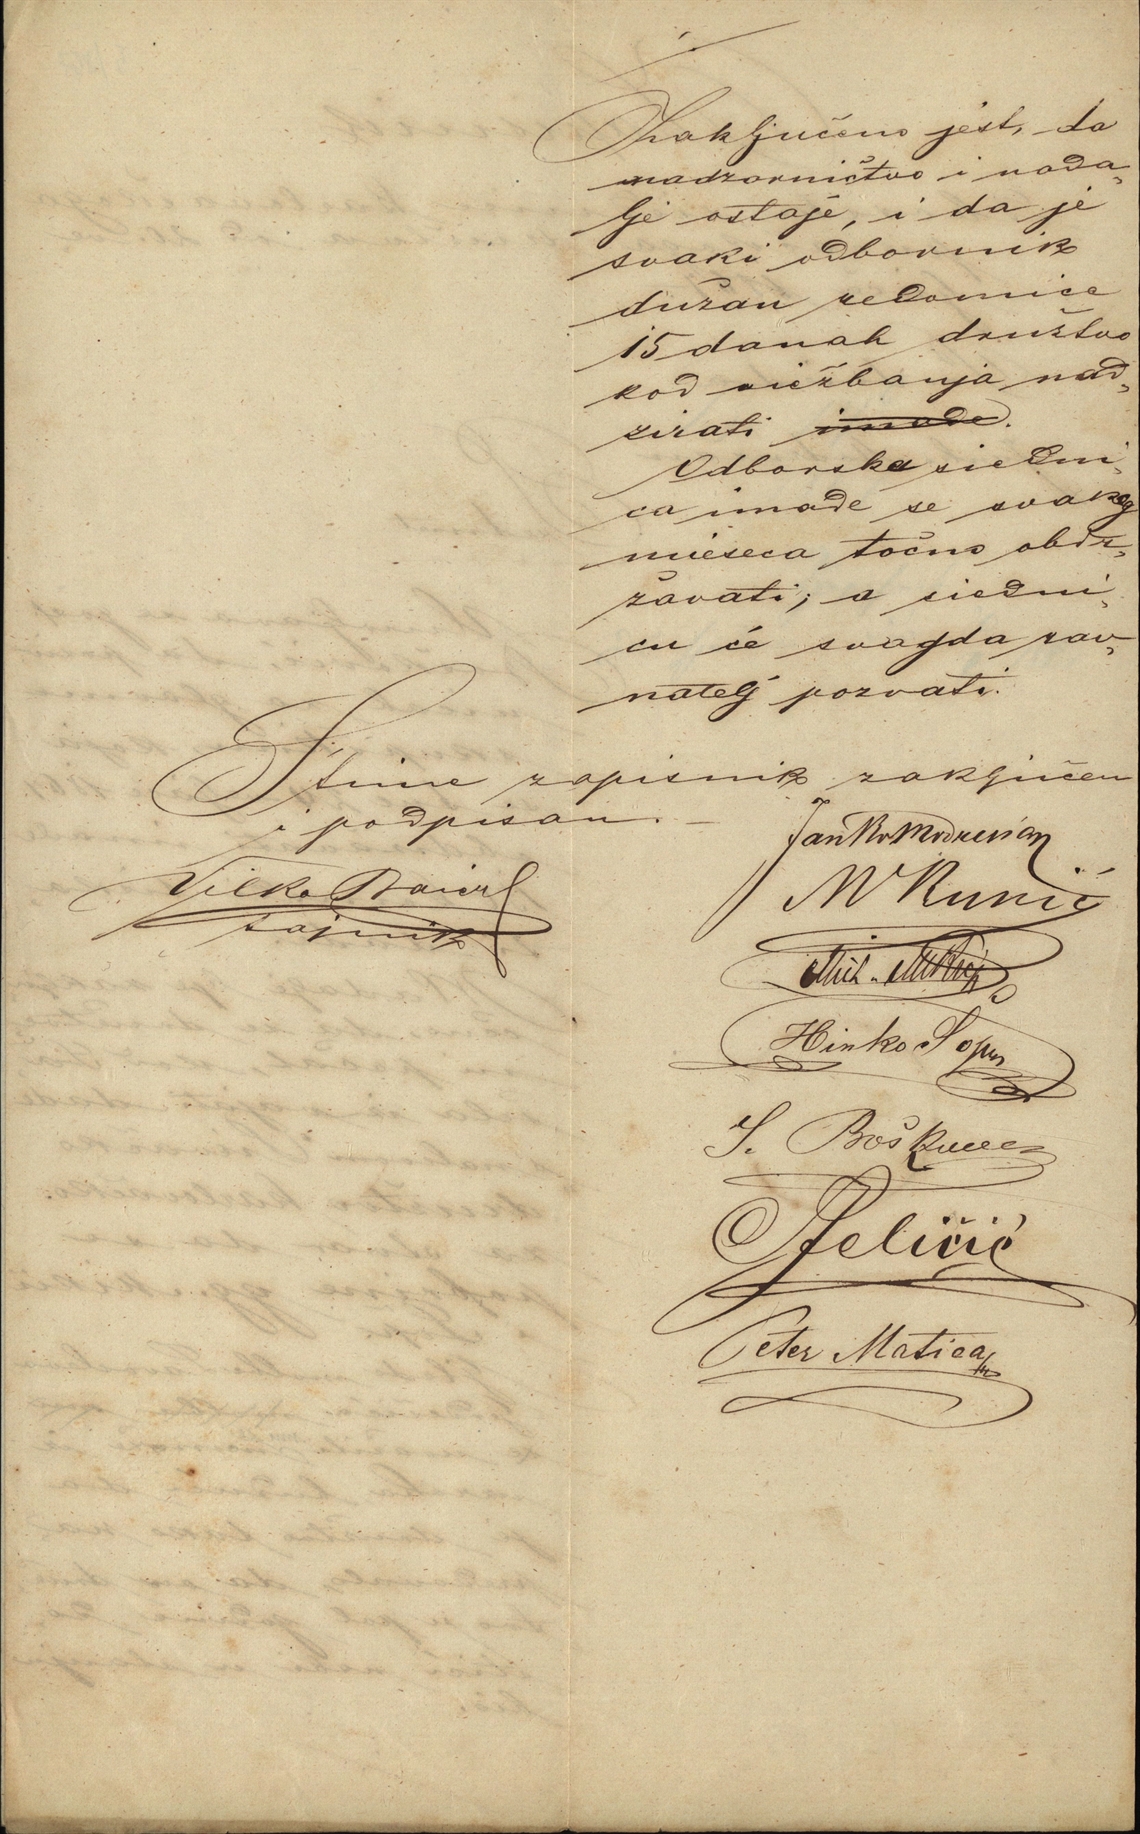 Zaključeno jest, da
nadzorničtvo i nada„
lje ostaje, i da je
svaki odbornik
dužan redomice
15 danah družtvo
kod viežbanja nad„
zirati imade.
Odborska siedni„
ca imade se svakog
mieseca točno obdr„
žavati; a siedni„
cu će svagda rav„
natelj pozvati.
S time zapisnik zaključen
i podpisan. —
Janko Modrušan
Vilko
M Kunić
tajnik
Mich.
Hinko Šopr
S. Boškovec
Jeličić
Peter Matica